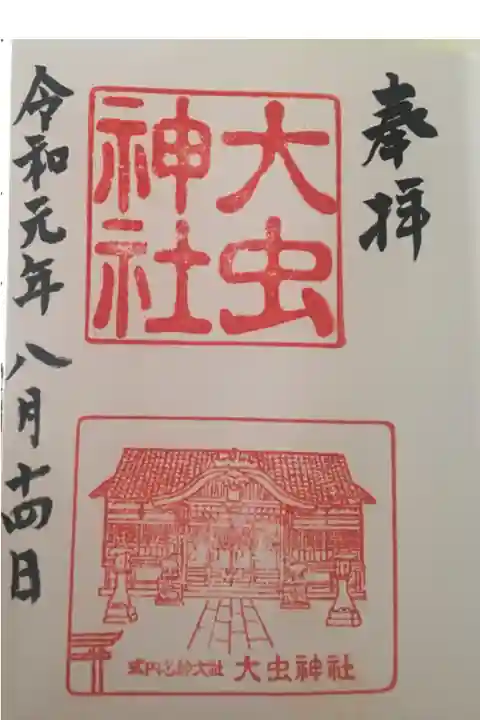 奉拝
大虫
神社
式内名神大社 大虫神社
令和元年八月十四日